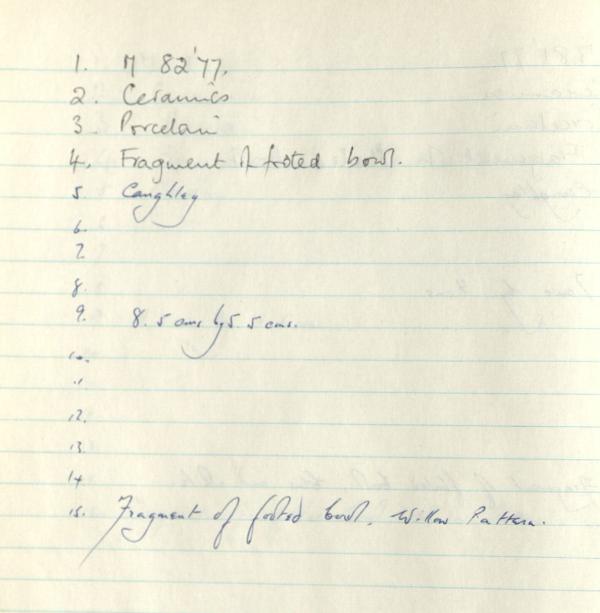 1. M 82'77.
2. Ceramics
3. Porcelain
4. Fragment of footed bowl.
5. Caughley
6.
7.
8.
9. 8.5 cms by 5.5 cms.
10.
11.
12.
13.
14.
15. Fragment of footed bowl. Willow Pattern.